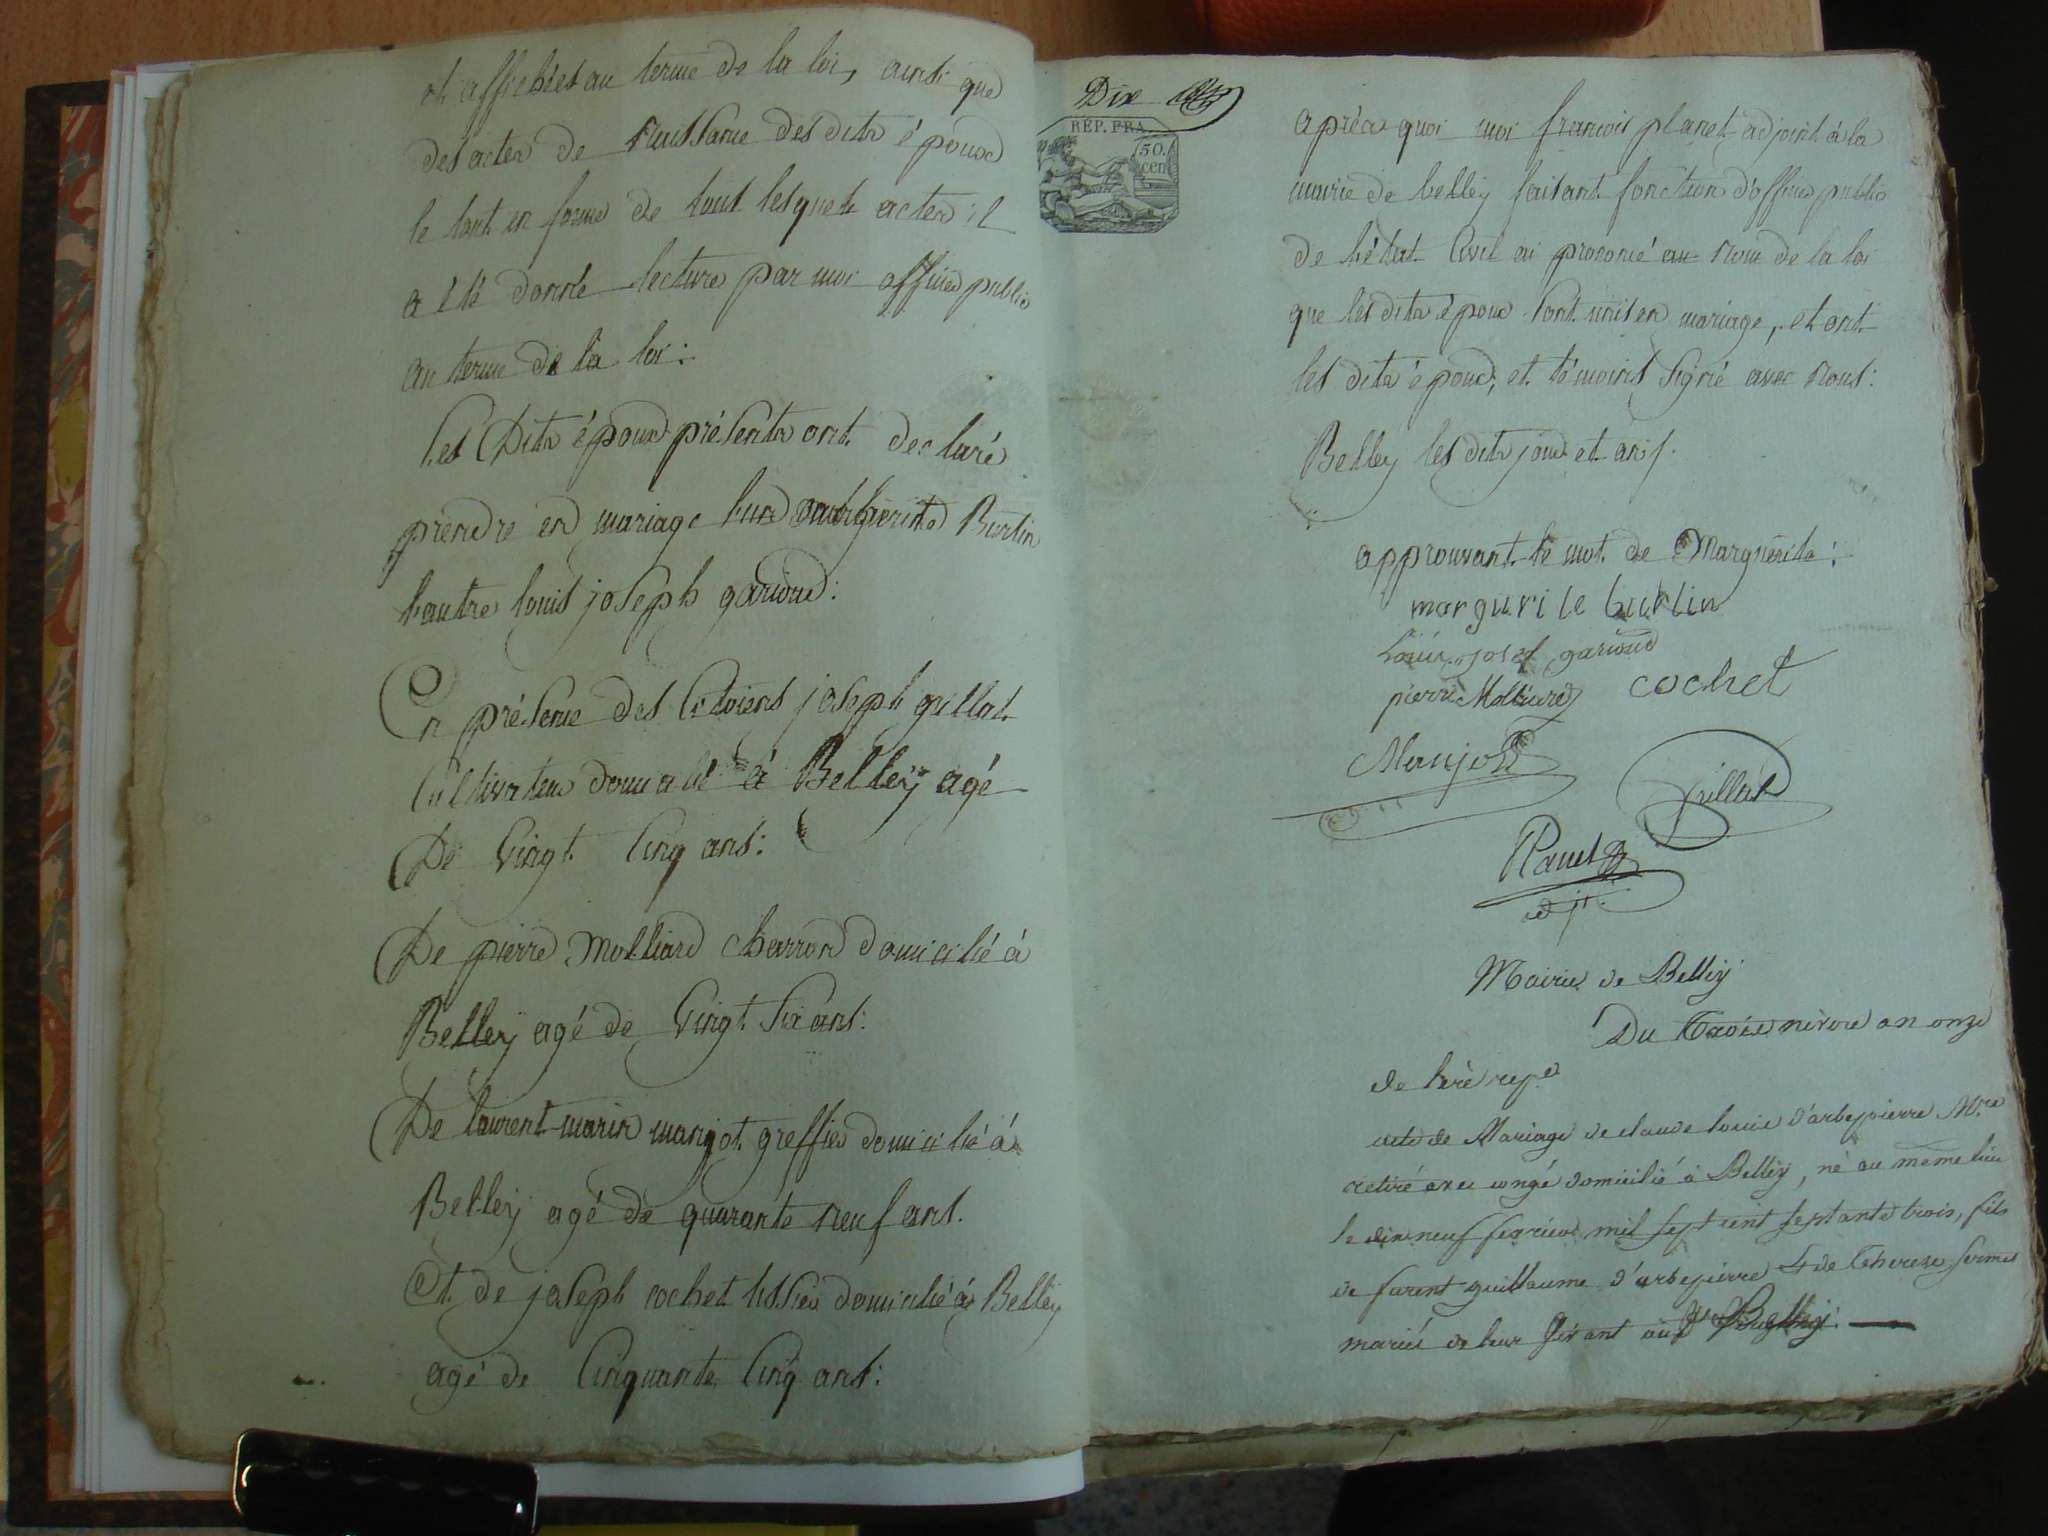 et affichés au terme de la loi, ainsi que
des actes de naissance des dits époux
le tout en forme de tous lesquels actes il
a été donné lecture par moi officier public
au terme de la loi:
les Dits époux présents ont declaré
prendre en mariage l'un marguerite Burtin
l'autre louis joseph garioud:
En présence des Citoiens joseph guillat
Cultivateur domicilié à Belley agé
De Vingt Cinq ans:
De pierre Molliard charron domicilié à
Belley agé de Vingt Six ans:
De laurent marin manjot greffier domicilié à
Belley agé de quarante neuf ans.
Et de joseph cochet tissier domicilié à Belley
agé de Cinquante Cinq ans:
Dix
RÉP. FRA.
50.
cen
après quoi moi francois planet adjoint à la
mairie de belley faisant fonction d'officier public
de l'état Civil ai prononcé au nom de la loi
que les dits époux sont unis en mariage, et ont
les dits époux, et témoins signé avec nous:
Belley les dits jour et an.
approuvant le mot de Marguerite:
marguri le burlin
louis josef garioud
pierre Molliard cochet
Manjot
Guillat
Planet
adjt.
Mairie de Belley
Du Trois nivose an onze
de l'ère repe
acte de Mariage de claude louis d'arbepierre Mre
retiré avec congé domicilié à Belley, né au même lieu
le dix neuf fevrier mil sept cent septante trois, fils
de furent guillaume d'arbepierre & de Therese
mariés de leur Vivant au Belley.